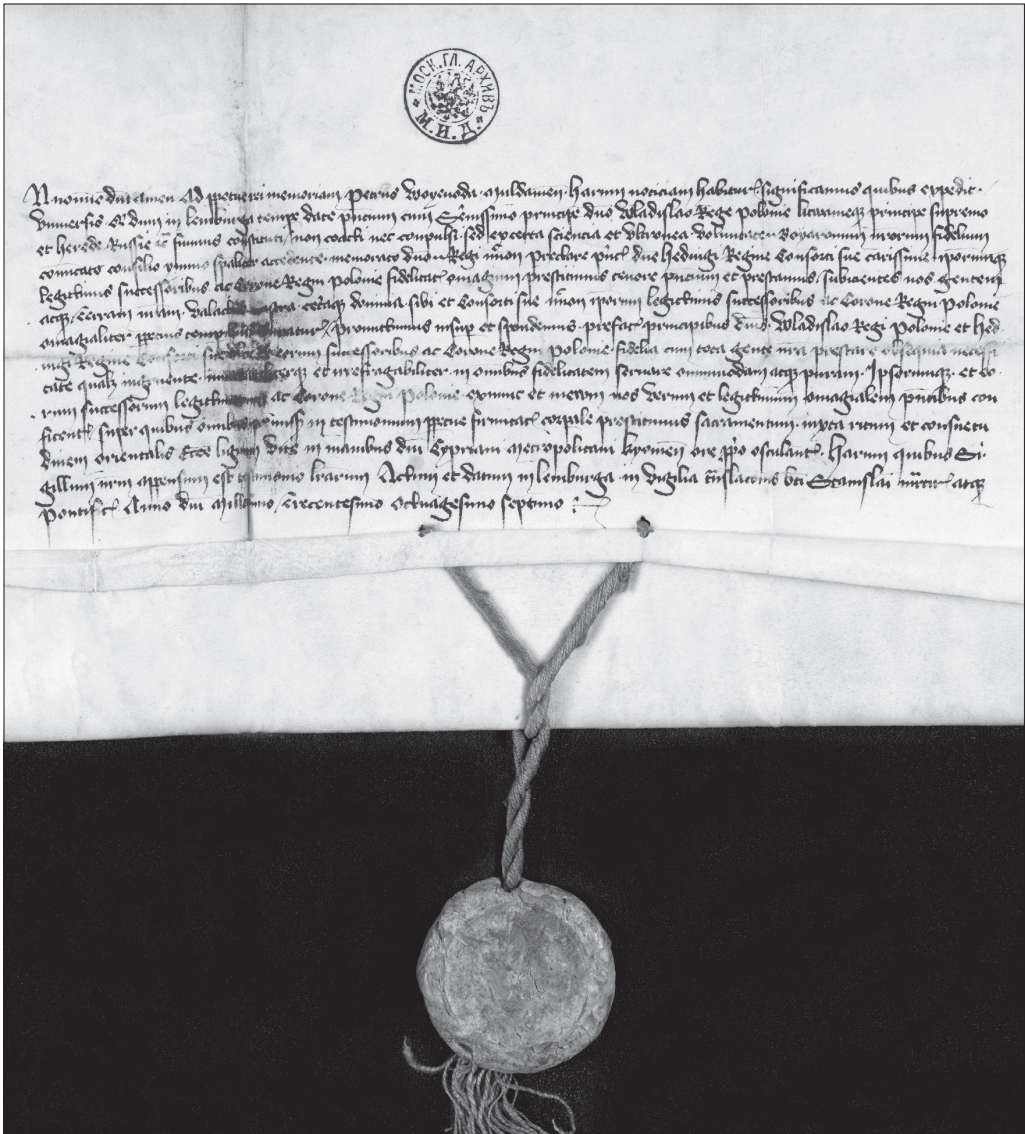 МОСК. ГЛ. АРХИВЪ
М. И. Д.
N nomine dni amen Ad ppetuam rei memoriam Petrus Woyewoda Muldawien harum noticiam habitur significamus quibus expedit
vniuersis Et dum in lemburga tempe date pncium cum Serenissimo principe dno Wladislao Rege Polonie litwanieqz principe supremo
et herede Russie sumus constituti non coacti nec conpulsi sed ex certa sciencia et vltronea voluntate Boyaromqz nrorum fidelium
comicato consilio ymmo spaliter accedente memorato dno Regi preclare dne Hedwigi Regine Consorti sue carissime ipsorumqz
legittimis successoribus ac Corone Regni Polonie fidelitatis omagium prestitimus tenore pncium et prestamus subicientes nos gentemqz
atqz terram nram Valachie castra ceteraqz dominia sibi et Consorti sue ipsorum legittimis successoribus ac Corone Regni Polonie
omagialiter Promittimus insup et spondemus prefatis principibus dnis Wladislao Regi Polonie et Hed
wigi Regine Consorti sue eorum successoribus ac Corone Regni Polonie fidelia cum tota gente nra prestare obsequia necessi
tate qualibz ingruente et irrefragabiliter in omnibus fidelitatem seruare omnimodam atqz puram Ipsorumqz et eo
rum successorum legittimum ac Corone Regni Polonie exnunc et in eternum nos verum et legittimum omagialem pntibus con
fitentes super quibus omnibus in testimonium ppetue firmitatis corpale prestitimus sacramentum iuxta ritum et consuetu
dinem orientalis Ecce lignum vite in manibus dni Cypriani Metropolitani kyowien ore pprio osculantes Harum quibus Si
gillum nrm appensum est testimonio lrarum Actum et datum in lemburga in vigilia translacionis bti Stanislai mrtiris atqz
Pontificis Anno dni Millesimo Trecentesimo Octuagesimo septimo